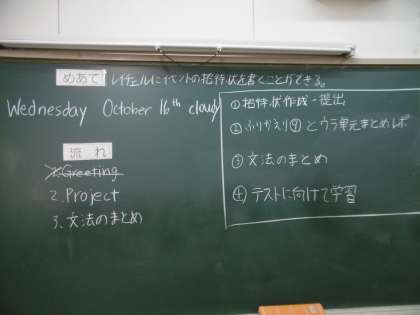 めあて レイチェルにイベントの招待状を書くことができる。
Wednesday October 16th cloudy
流れ
1.Greeting
2.Project
3.文法のまとめ
①招待状作成・提出
②ふりかえり⑨とウラ単元まとめレポ
③文法のまとめ
④テストに向けて学習